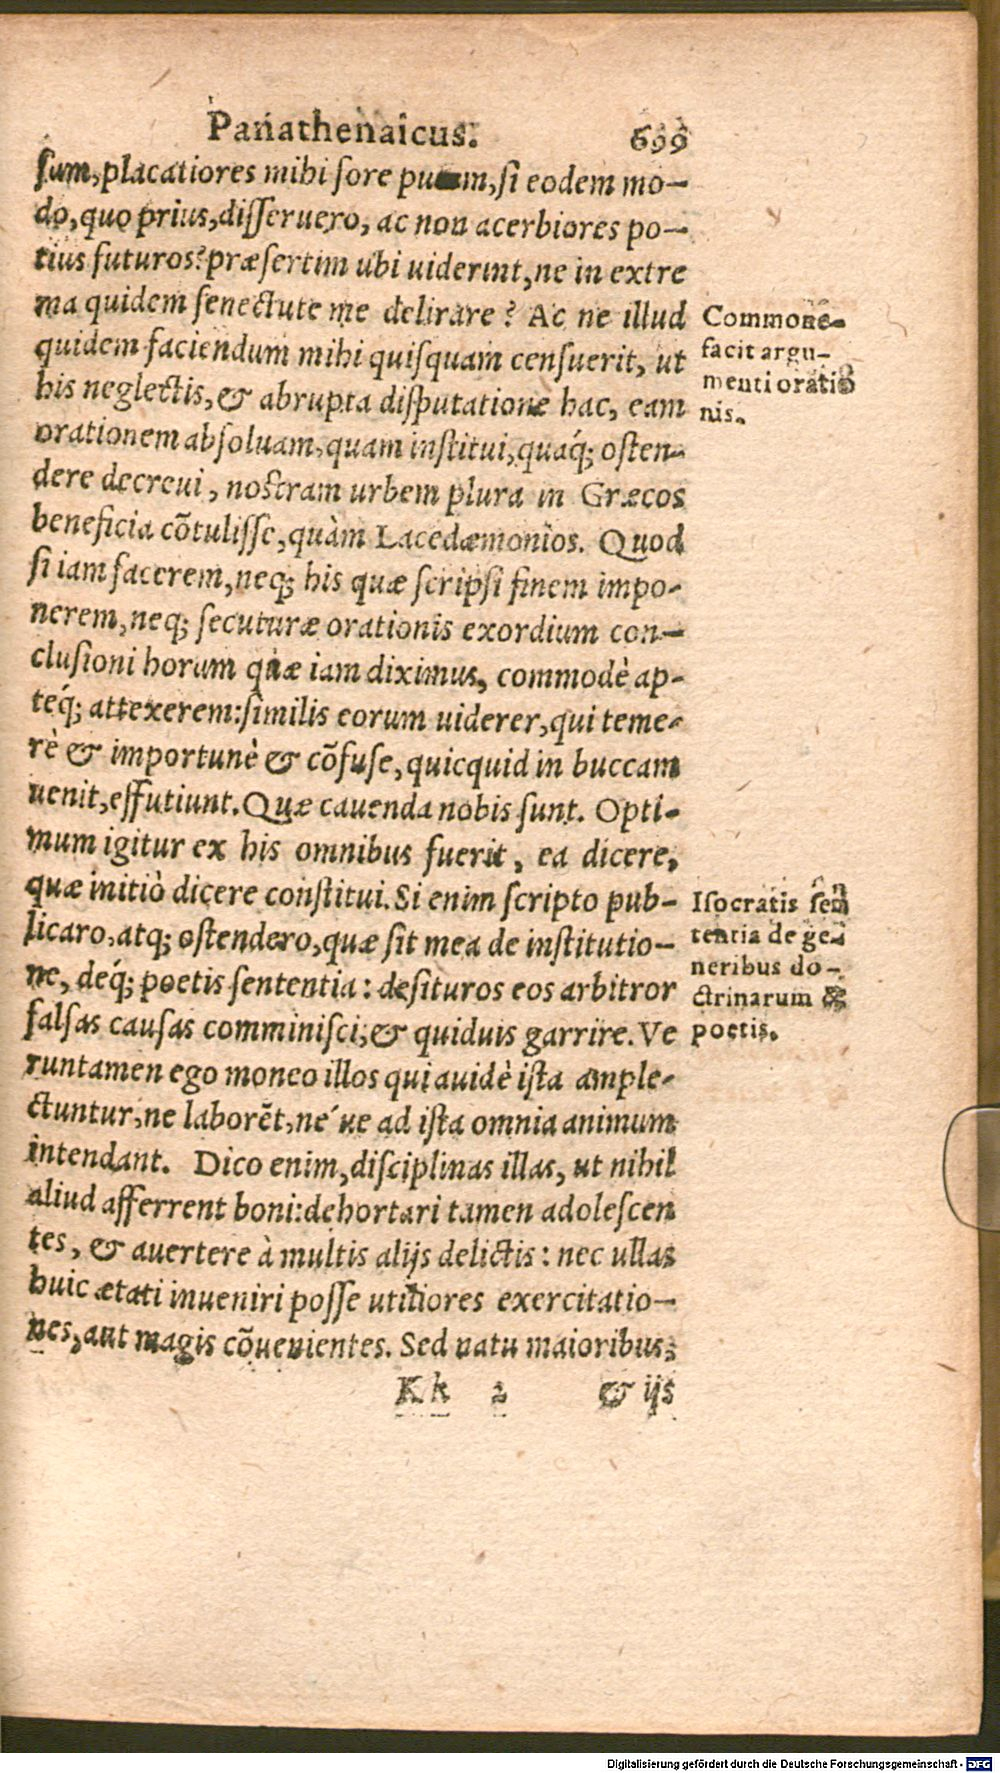 Panathenaicus. 699
ſum, placatiores mihi fore putem, ſi eodem mo-
do, quo prius, diſſeruero, ac non acerbiores po-
tius futuros? præſertim ubi uiderint, ne in extre
ma quidem ſenectute me delirare? Ac ne illud
quidem faciendum mihi quiſquam cenſuerit, ut
his neglectis, & abrupta diſputatione hac, eam
orationem abſoluam, quam inſtitui, quáq; oſten-
dere decreui, noſtram urbem plura in Græcos
beneficia cõtuliſſe, quàm Lacedæmonios. Quod
ſi iam facerem, neq; his quæ ſcripſi finem impo-
nerem, neq; ſecuturæ orationis exordium con-
cluſioni horum quæ iam diximus, commodè ap-
téq; attexerem: ſimilis eorum uiderer, qui teme-
rè & importunè & cõfuſe, quicquid in buccam
uenit, effutiunt. Quæ cauenda nobis ſunt. Opti-
mum igitur ex his omnibus fuerit, ea dicere,
quæ initiò dicere conſtitui. Si enim ſcripto pub-
licaro, atq; oſtendero, quæ ſit mea de inſtitutio-
ne, deq́; poetis ſententia: deſituros eos arbitror
falſas cauſas comminiſci; & quiduis garrire. Ve
runtamen ego moneo illos qui auidè iſta ample-
ctuntur, ne laborẽt, né ue ad iſta omnia animum
intendant. Dico enim, diſciplinas illas, ut nihil
aliud afferrent boni: dehortari tamen adoleſcen
tes, & auertere à multis alijs delictis: nec ullas
huic ætati inueniri poſſe utiliores exercitatio-
nes, aut magis cõuenientes. Sed natu maioribus,
Kk 2 & ijs
Commone-
facit argu-
menti oratio
nis.
Iſocratis ſen
tentia de ge-
neribus do-
ctrinarum &
poetis.
Digitalisierung gefördert durch die Deutsche Forschungsgemeinschaft - DFG